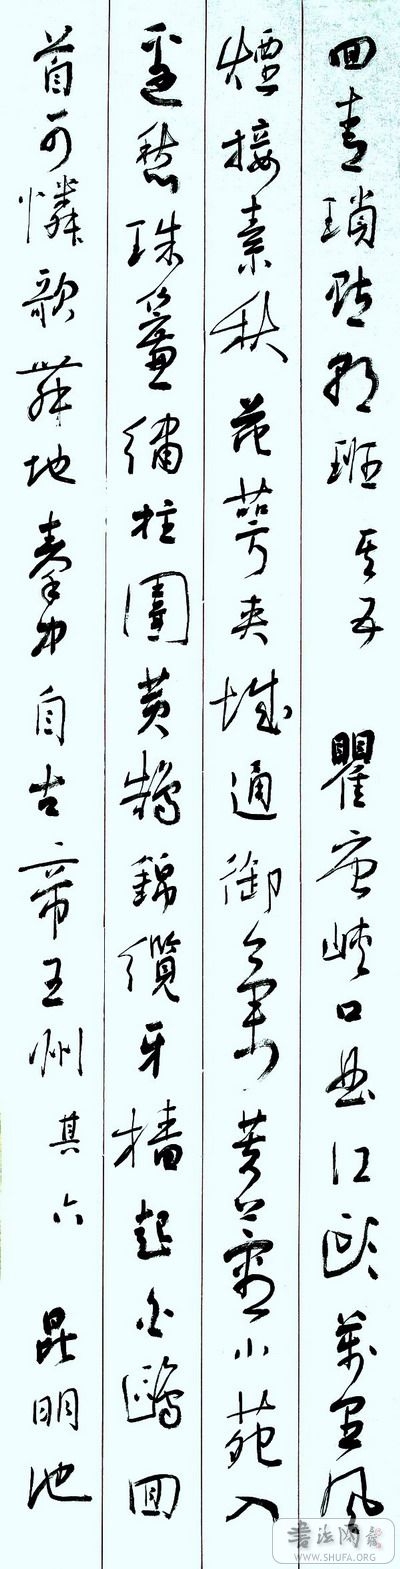 回青瑣點朝班其五 瞿唐峽口曲江頭萬里風
煙接素秋花萼夾城通御氣芙蓉小苑入
邊愁珠簾繡柱圍黃鵠錦纜牙檣起白鷗回
首可憐歌舞地秦中自古帝王州其六 昆明池
書法網
WWW.SHUFA.ORG